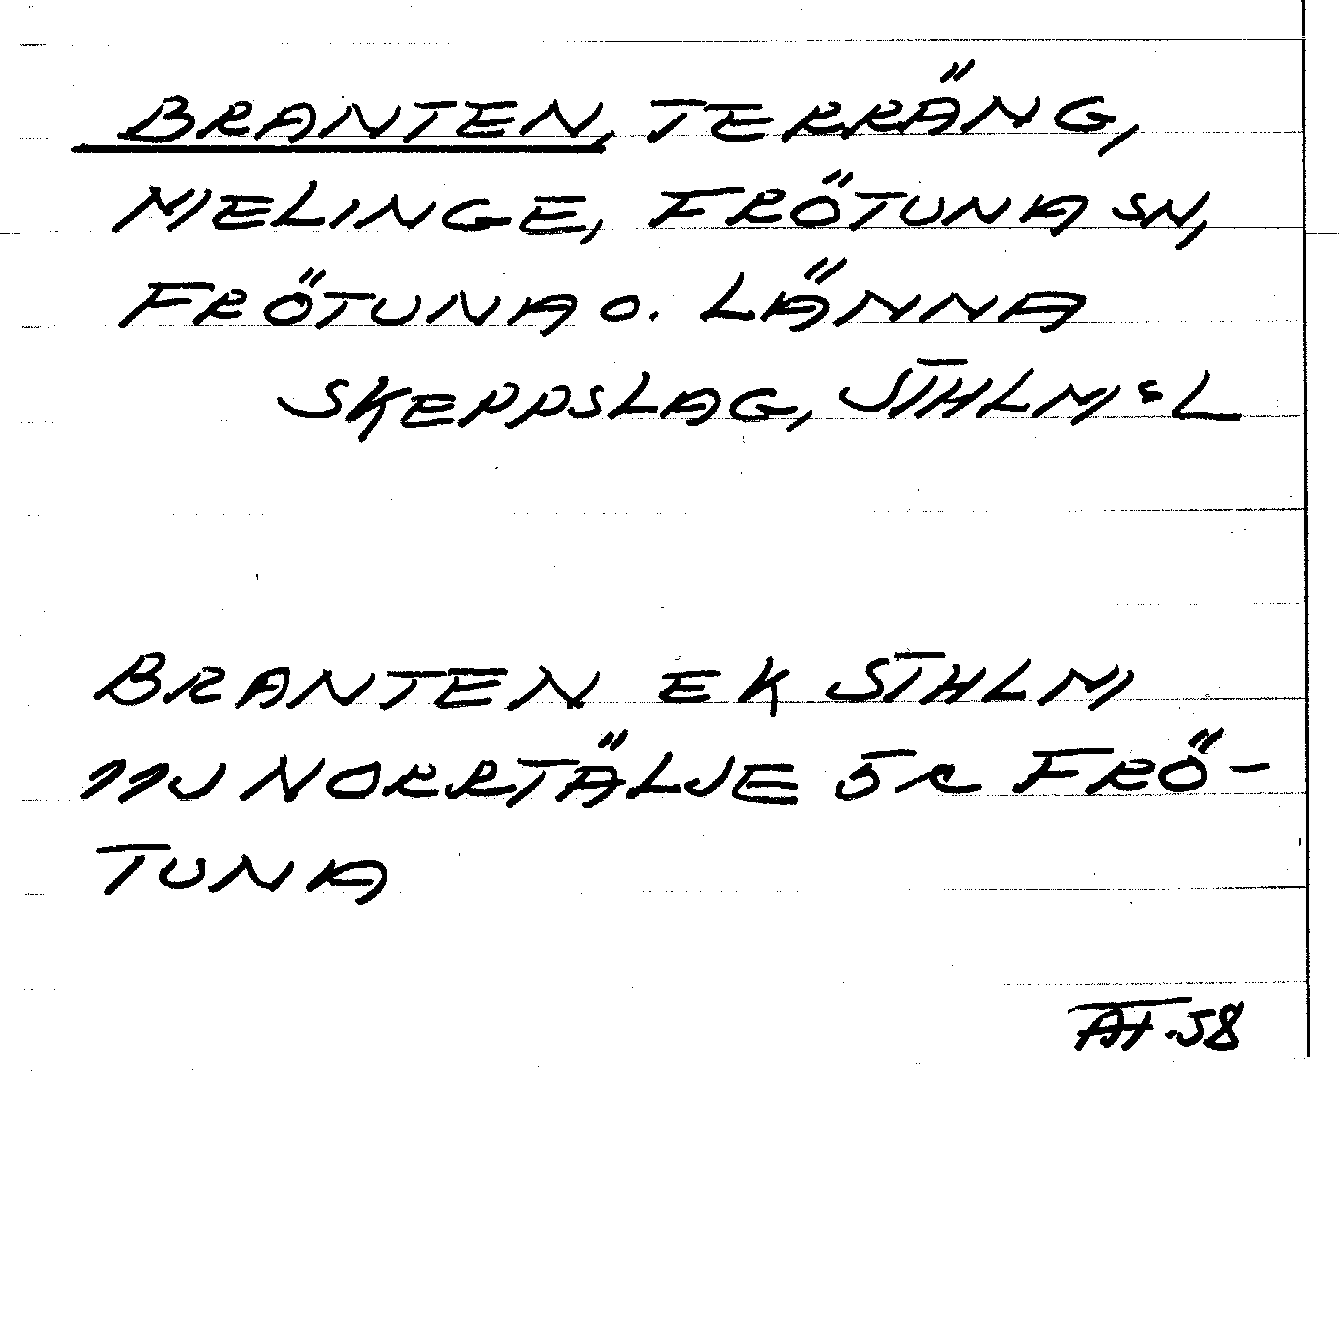 BRANTEN, TERRÄNG,
MELINGE, FRÖTUNA SN,
FRÖTUNA O. LÄNNA
SKEPPSLAG, STHLMSL
BRANTEN EK STHLM
11J NORRTÄLJE 5c FRÖ-
TUNA
AH-58